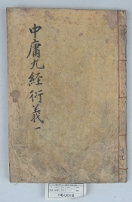 中庸九経衍義 一